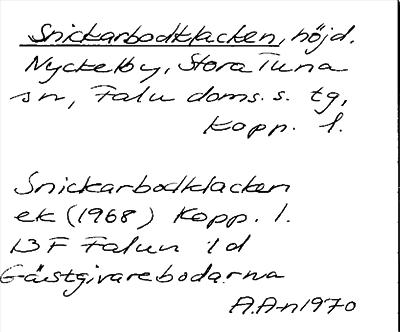 Snickarbodklacken, höjd.
Nyckelby, Stora Tuna
sn, Falu doms. s. tg,
Kopp. l.
Snickarbodklacken
ek (1968) Kopp. l.
13 F Falun 1d
Gästgivarebodarna
A.An 1970